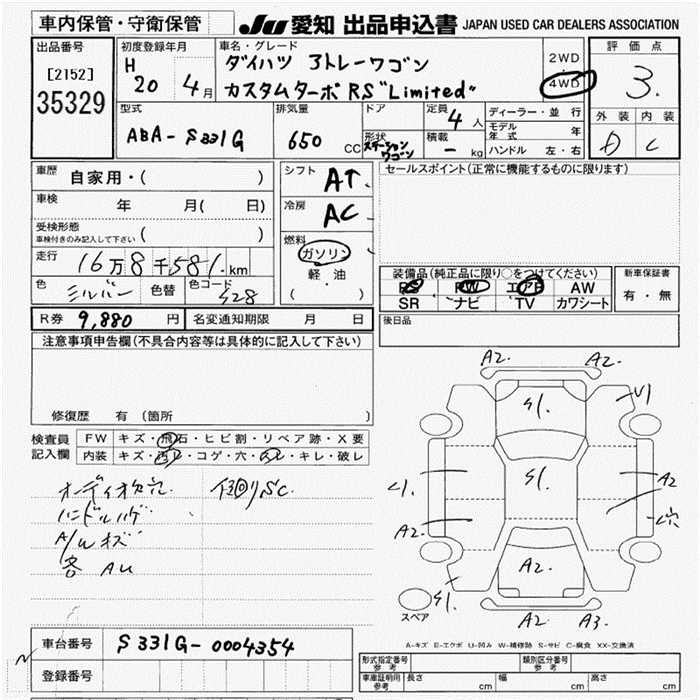 車内保管・守衛保管
JU 愛知 出品申込書 JAPAN USED CAR DEALERS ASSOCIATION
出品番号
[2152]
35329
初度登録年月
H
20 4月
車名・グレード
ダイハツ アトレーワゴン
カスタムターボ RS "Limited"
2WD
4WD
評価点
3.
外装 内装
D C
型式
ABA-S331G
排気量
650 CC
ドア
形状
ステーション
ワゴン
定員 4人
積載 - kg
ディーラー・並行
モデル年式 年
ハンドル 左・右
車歴 自家用・( )
車検 年 月( 日)
受検形態
車検付きのみ記入して下さい ( )
走行 16万8千581.km
色 シルバー 色替 色コード S28
シフト AT.
冷房 AC
燃料
ガソリン
軽・油
( )
セールスポイント(正常に機能するものに限ります)
装備品(純正品に限り○をつけてください)
PS PW エアB AW
SR ナビ TV カワシート
新車保証書
有・無
R券 9,880 円 名変通知期限 月 日
後日品
注意事項申告欄(不具合内容等は具体的に記入して下さい)
修復歴 有(箇所
検査員
記入欄
FW キズ・飛石・ヒビ割・リペア跡・X要
内装 キズ・汚レ・コゲ・穴・スレ・キレ・破レ
ハンドルハゲ
A/Wキズ
A2. A2.
S1.
S1.
A2
A2.
A2.
S1.
A2 A3.
スペア
A-キズ E-エクボ U-凹み W-補修跡 S-サビ C-腐食 XX-交換済
車台番号 S331G-0004354
登録番号
形式指定番号
参考
類別区分番号
参考
車庫証明用
参考
長さ cm 幅 cm 高さ cm